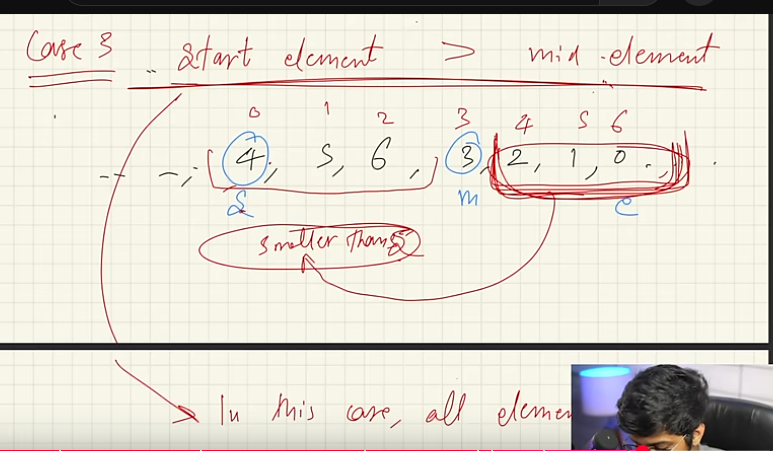 Case 3 start element > mid element
0 1 2 3 4 5 6
4, 5, 6, 3, 2, 1, 0
S m e
smaller than S
In this case, all elemen